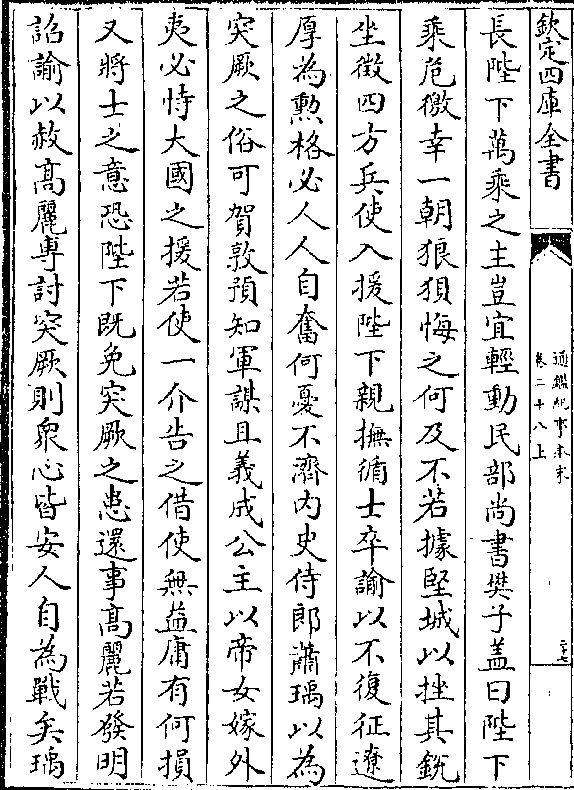 欽定四庫全書
通鑑紀事本末
卷二十八上
二十七
長陛下萬乘之主豈宜輕動民部尚書樊子盖曰陛下
乘危徼幸一朝狼狽悔之何及不若據堅城以挫其銳
坐徵四方兵使入援陛下親撫循士卒諭以不復征遼
厚為勲格必人人自奮何憂不濟内史侍郎蕭瑀以為
突厥之俗可賀敦預知軍謀且義成公主以帝女嫁外
夷必恃大國之援若使一介告之借使無益庸有何損
又將士之意恐陛下既免突厥之患還事髙麗若發明
詔諭以赦髙麗専討突厥則衆心皆安人自為戰矣瑀